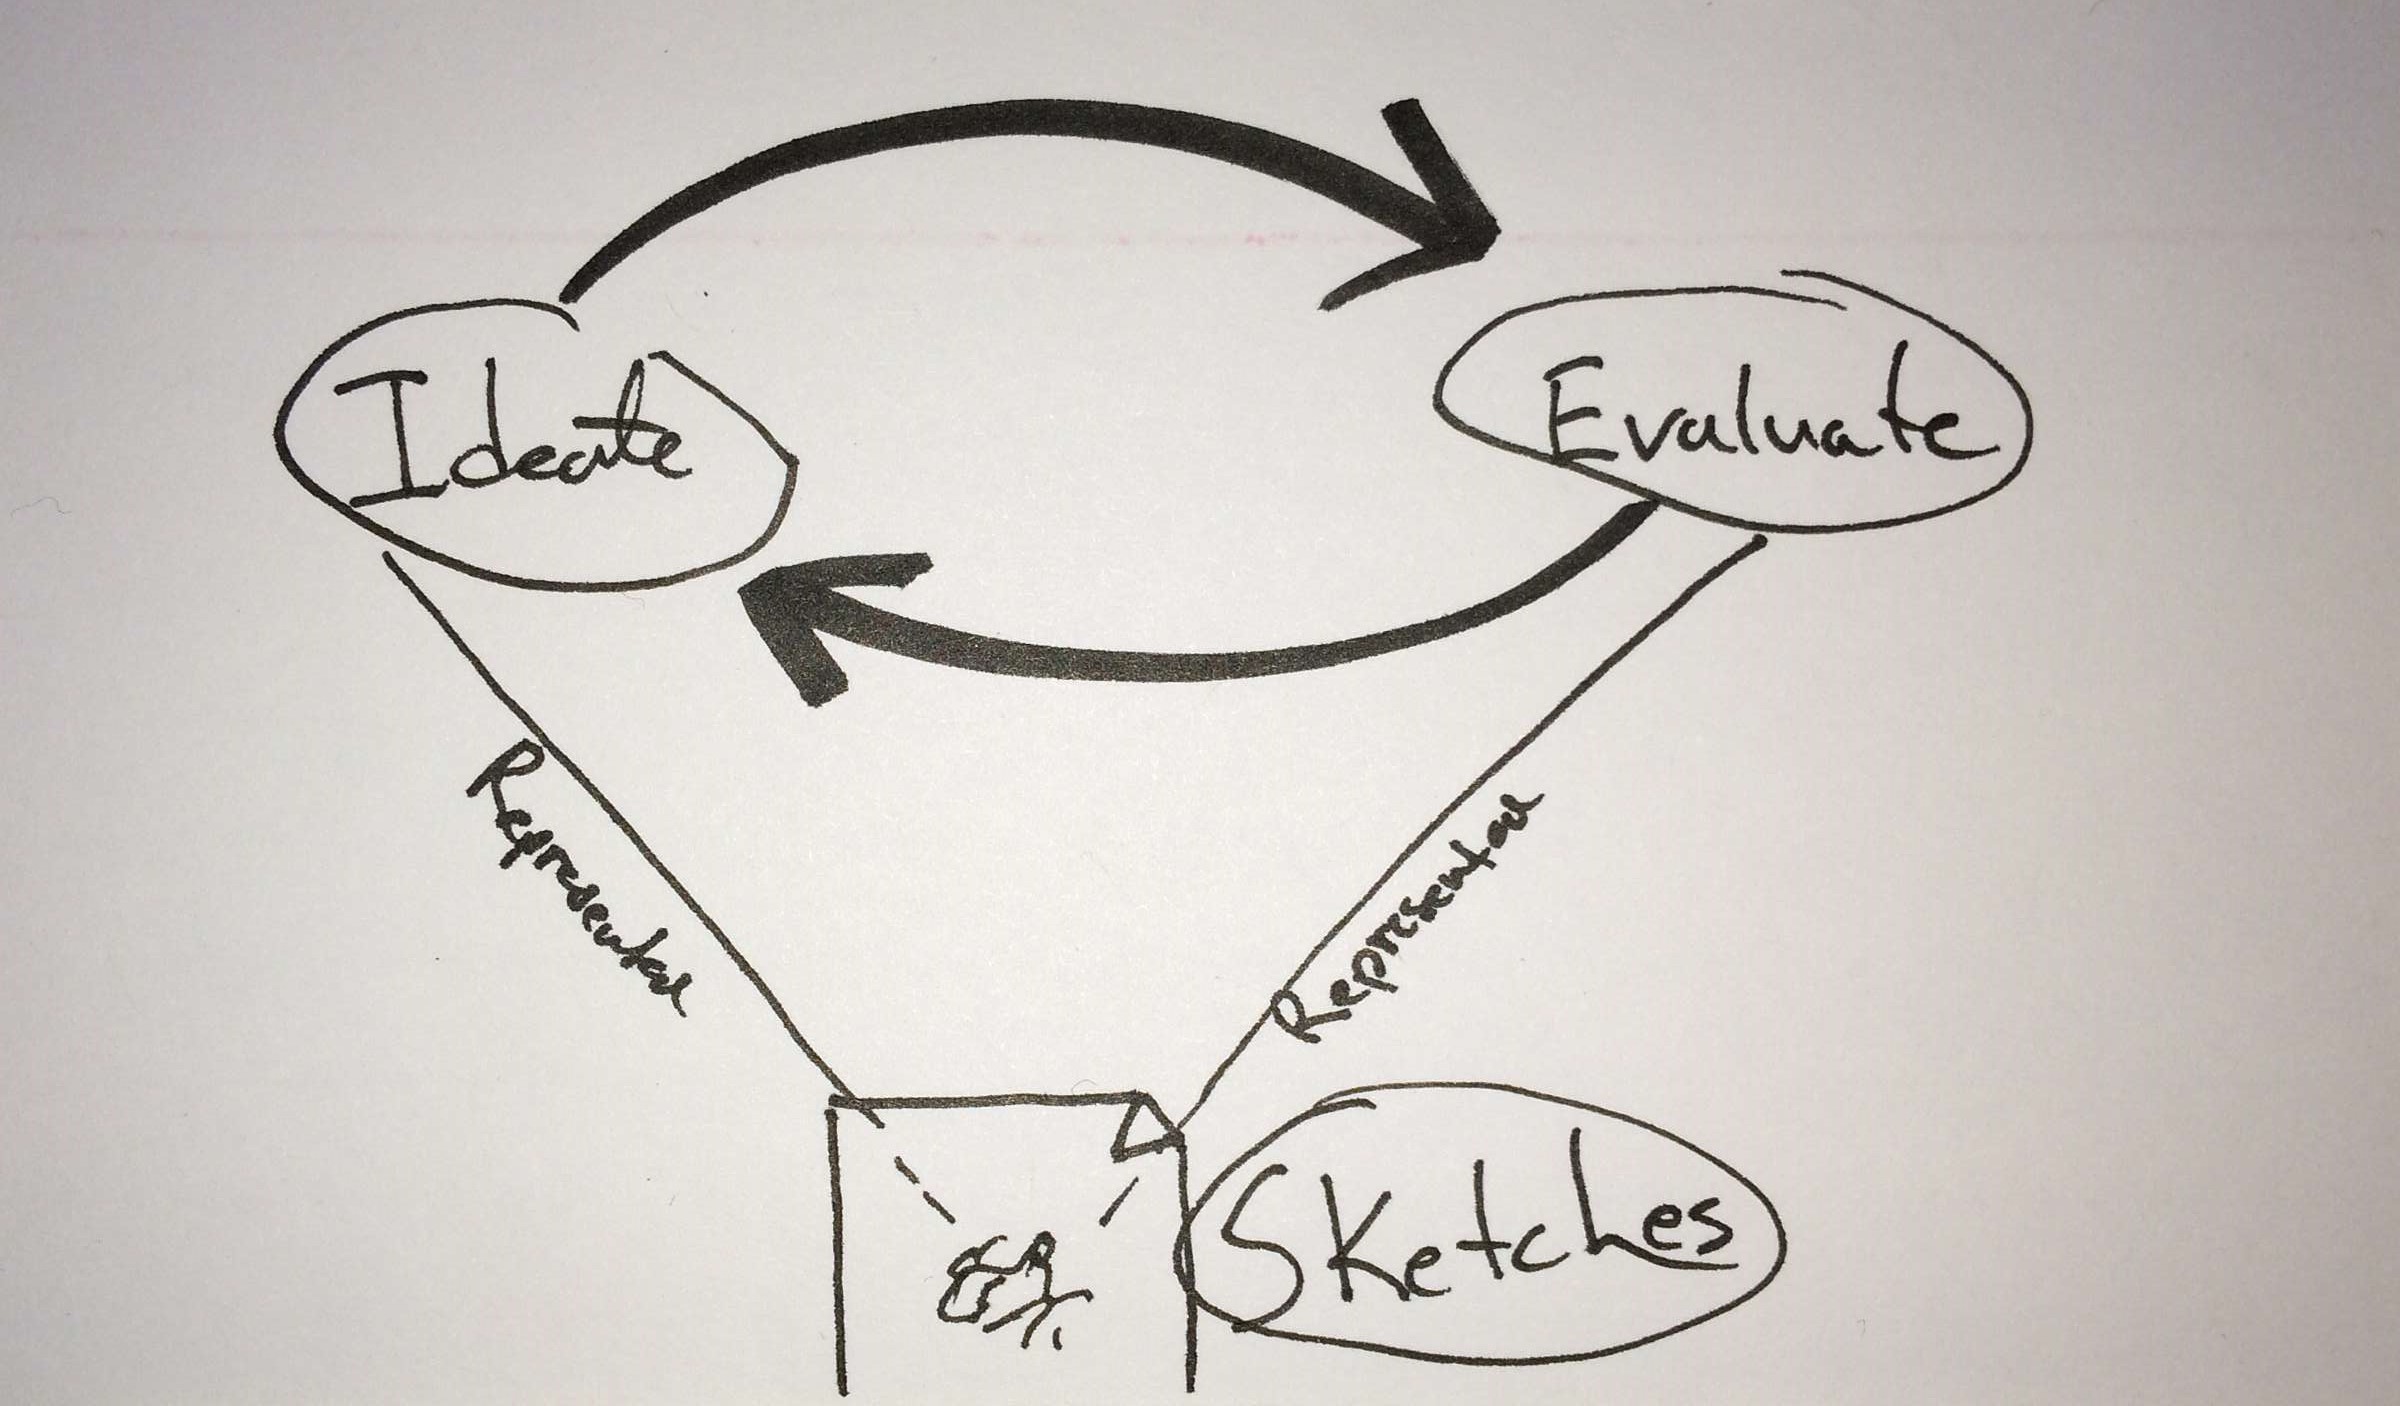 Ideate
Evaluate
Represented
Represented
Sketches